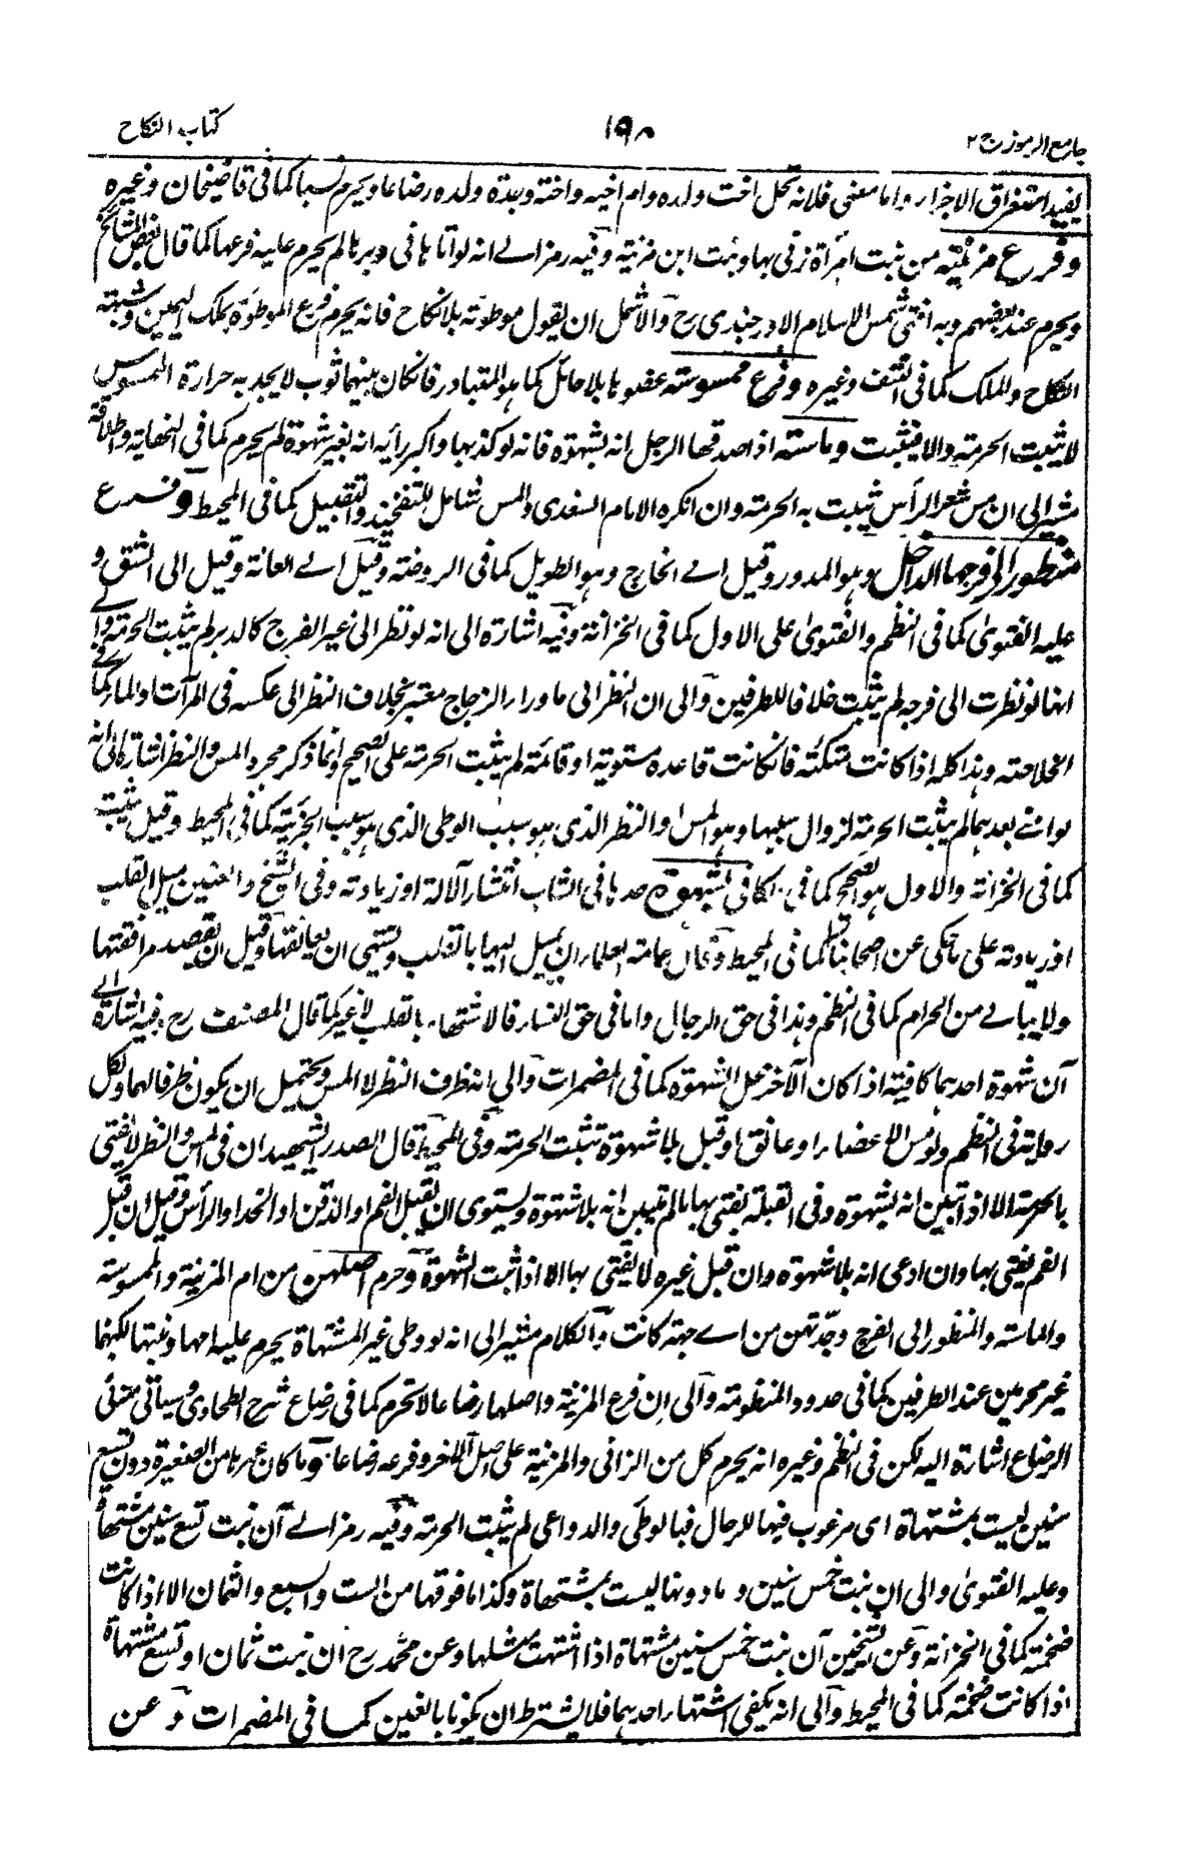 جامع الرموز ج ٢ ١٩٨ كتاب النكاح
يفيد استغراق الاجزاء واما معنى فلانه تحل اخت ولده وام اخيه واخته وجدة ولده رضاعا ويحرم نسبا كما فى قاضيخان وغيره
وفرع مزنيته من بنت امرأة زنى بها وبنت ابن مزنية وفيه رمز الى انه لو اتاها فى دبرها لم يحرم عليه فرعها كما قال بعض المشائخ
ويحرم عند بعضهم وبه افتى شمس الاسلام الاوزجندى رح والاشمل ان يقول موطوئته بلا نكاح فانه يحرم فرع الموطوءة بملك اليمين وشبهة
النكاح والملك كما فى النتف وغيره وفرع ممسوسته عضو ما بلا حائل كما هو المتبادر فان كان بينهما ثوب لا يجد به حرارة الممسوس
لا يثبت الحرمة والا فيثبت وماسته اذا صدقها الرجل انه بشهوة فانه لو كذبها واكبر رأيه انه بغير شهوة لم يحرم كما فى النهاية واطلاقه
مشير الى ان مس شعر الرأس يثبت به الحرمة وان انكره الامام السغدى والمس شامل للتفخيذ والتقبيل كما فى المحيط وفرع
منظور الى فرجها الداخل وهو المدور وقيل الى الخارج وهو الطويل كما فى الروضة وقيل الى العانة وقيل الى الشق و
عليه الفتوىٰ كما فى النظم والفتوىٰ على الاول كما فى الخزانة وفيه اشارة الى انه لو نظر الى غير الفرج كالدبر لم يثبت الحرمة والى
انها لو نظرت الى فرجه لم يثبت خلافا للطرفين والى ان النظر الى ما وراء الزجاج معتبر بخلاف النظر الى عكسه فى المرآت او الماء كما فى
الخلاصة وهذا كله اذا كانت متكئة فان كانت قاعدة مستوية او قائمة لم يثبت الحرمة على الصحيح وانما ذكر مجرد المس والنظر اشارة الى انه
لو انزل بعدهما لم يثبت الحرمة لزوال سببها وهو المس والنظر الذى هو سبب الوطى الذى هو سبب الجزئية كما فى المحيط وقيل يثبت
كما فى الخزانة والاول هو الصحيح كما فى الكافى بشهوة حدها فى الشاب انتشار الآلة او زيادته وفى الشيخ والعنين ميل القلب
او زيادته على ما حكى عن اصحابنا كما فى المحيط وقال عامة العلماء ان يميل اليها بالقلب ويشتهى ان يعانقها وقيل ان يقصد مواقعتها
ولا يبالى من الحرام كما فى النظم وهذا فى حق الرجال واما فى حق النساء فالاشتهاء بالقلب لا غير كما قال المصنف رح وفيه اشارة الى
ان شهوة احدهما كافية اذا كان الآخر محل الشهوة كما فى المضمرات والى انه ظرف النظر لا المس ويحتمل ان يكون ظرفا لهما ولكل
رواية فى النظم ولو مس الاعضاء او عانق او قبل بلا شهوة تثبت الحرمة وفى المحيط قال الصدر الشهيد ان فى المس والنظر لا يفتى
بالحرمة الا اذا تبين انه بشهوة وفى القبلة يفتى بها ما لم يتبين انه بلا شهوة ويستوى ان يقبل الفم او الذقن او الخد او الرأس وقيل ان قبل
الفم يفتى بها وان ادعى انه بلا شهوة وان قبل غيره لا يفتى بها الا اذا ثبت الشهوة وحرم اصلهن من ام المزنية والممسوسة
والماسة والمنظور الى الفرج وجدتهن من اى جهة كانت والكلام مشير الى انه لو وطى غير المشتهاة يحرم عليه امها وبنتها لكنهما
غير محرمين عند الطرفين كما فى حدود المنظومة والى ان فرع المزنية واصلها رضاعا لا تحرم كما فى رضاع شرح الطحاوى وسياتى فى
الرضاع اشارة اليه لكن فى النظم وغيره انه يحرم كل من الزانى والمزنية على اصل الآخر وفرعه رضاعا وما كان عمرها من الصغيرة دون تسع
سنين ليست بمشتهاة اى مرغوب فيها للرجال فبالوطى والدواعى لم يثبت الحرمة وفيه رمز الى ان بنت تسع سنين مشتهاة
وعليه الفتوىٰ والى ان بنت خمس سنين وما دونها ليست بمشتهاة وكذا ما فوقها من الست والسبع والثمان الا اذا كانت
ضخمة كما فى الخزانة وعن الشيخين ان بنت خمس سنين مشتهاة اذا اشتهت مثلها وعن محمد رح ان بنت ثمان او تسع مشتهاة
اذا كانت ضخمة كما فى المحيط والى انه يكفى اشتهاء احدهما فلا يشترط ان يكونا بالغين كما فى المضمرات وعن